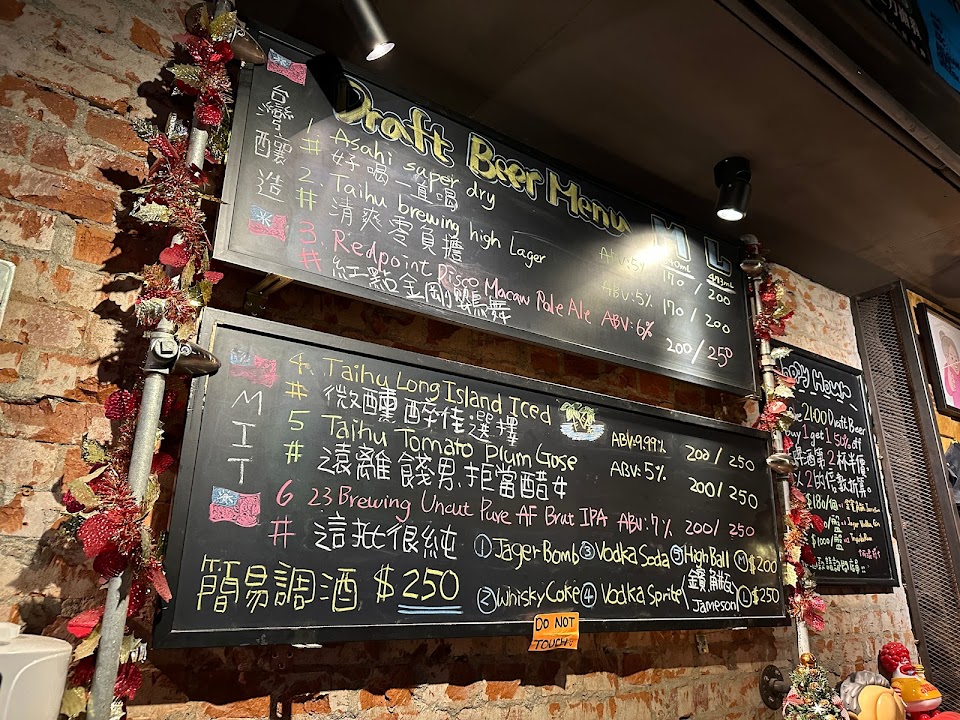 Draft Beer Menu M L
473mL
台灣釀造
1. Asahi super dry ABV:5% 170/200
# 好喝一直喝
2. Taihu brewing high Lager ABV:5% 170/200
# 清爽零負擔
3. Redpoint Disco Macaw Pale Ale ABV:6% 200/250
# 紅點金剛鸚鵡舞
MIT
4. Taihu Long Island Iced ABV:9.99% 200/250
# 微醺醉佳選擇
5 Taihu Tomato Plum Gose ABV:5% 200/250
# 遠離餞男.拒當醋女
6 23 Brewing Uncut Pure AF Brut IPA ABV:7% 200/250
# 這批很純
簡易調酒 $250
① Jager Bomb ③ Vodka Soda ⑤ High Ball Ⓜ $200
② Whisky Coke ④ Vodka Sprite Jameson Ⓛ $250
DO NOT
TOUCH
2100 Draft Beer
1 get 1 50% off
第2杯半價.
的倍數折算。
$180/個